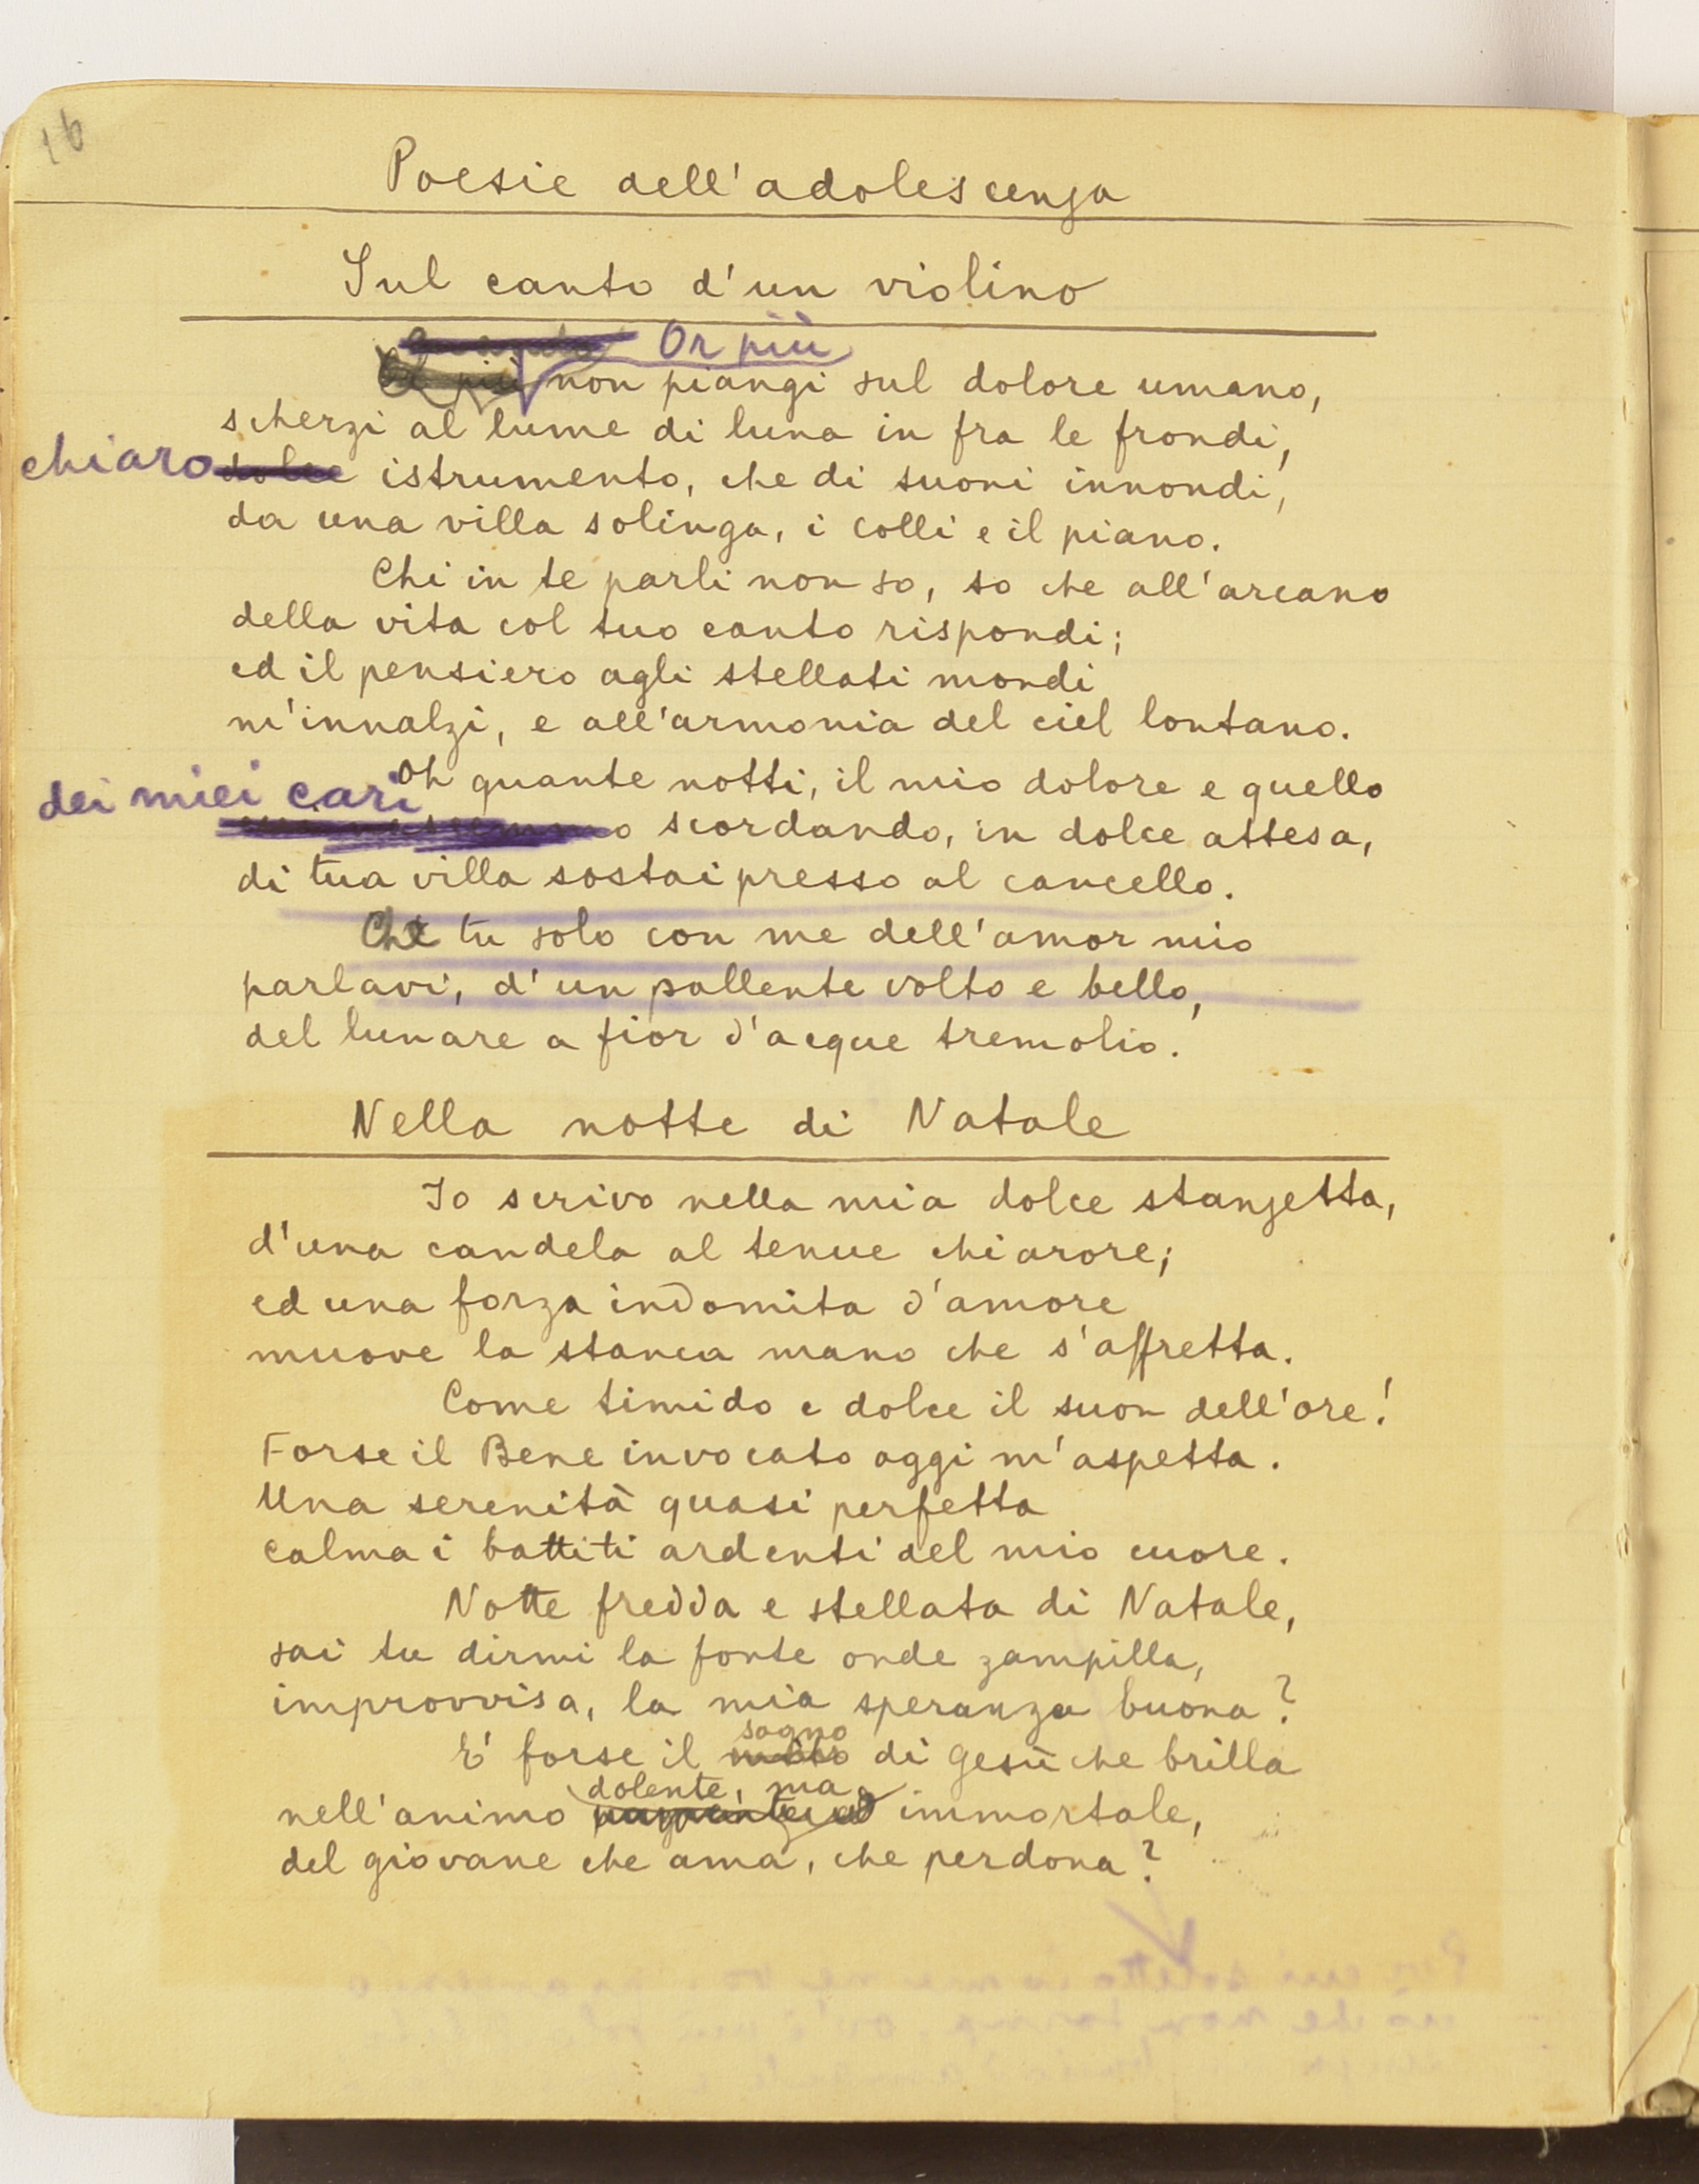 16
Poesie dell'adolescenza
Sul canto d'un violino
Or più
non piangi sul dolore umano,
scherzi al lume di luna in fra le frondi,
chiaro dolce istrumento, che di suoni innondi,
da una villa solinga, i colli e il piano.
Chi in te parli non so, so che all'arcano
della vita col tuo canto rispondi;
ed il pensiero agli stellati mondi
m'innalzi, e all'armonia del ciel lontano.
Oh quante notti, il mio dolore e quello
dei miei cari
scordando, in dolce attesa,
di tua villa sostai presso al cancello.
Che tu solo con me dell'amor mio
parlavi, d'un pallente volto e bello,
del lunare a fior d'acque tremolio.
Nella notte di Natale
Io scrivo nella mia dolce stanzetta,
d'una candela al tenue chiarore;
ed una forza indomita d'amore
muove la stanca mano che s'affretta.
Come timido e dolce il suon dell'ore!
Forse il Bene invocato oggi m'aspetta.
Una serenità quasi perfetta
calma i battiti ardenti del mio cuore.
Notte fredda e stellata di Natale,
sai tu dirmi la fonte onde zampilla,
improvvisa, la mia speranza buona?
sogno
E' forse il di Gesù che brilla
dolente, ma
nell'animo immortale,
del giovane che ama, che perdona?